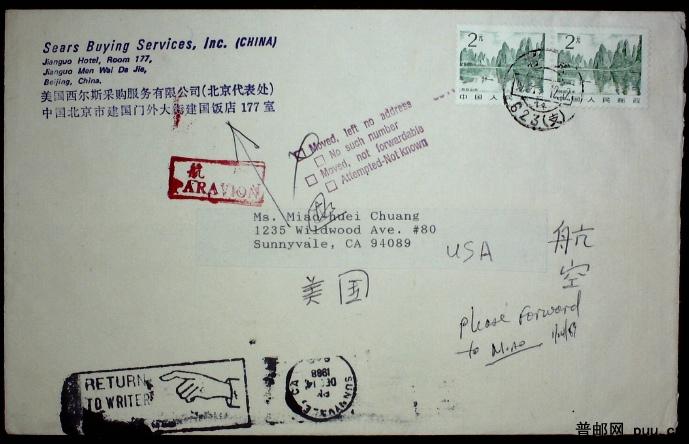 Sears Buying Services, Inc. (CHINA)
Jianguo Hotel, Room 177,
Jianguo Men Wai Da Jie,
Beijing, China.
美国西尔斯采购服务有限公司(北京代表处)
中国北京市建国门外大街建国饭店 177 室
2元
2元
中国人民邮政
人民邮政
623(支)
Moved, left no address
No such number
Moved, not forwardable
Attempted-Not known
航
PAR AVION
Ms. Miao-huei Chuang
1235 Wildwood Ave. #80
Sunnyvale, CA 94089
USA
航空
美国
Please Forward
to Miao
RETURN
TO WRITER
SUNNYVALE, CA
PM
DEC 14
1988
普邮网 puu.c